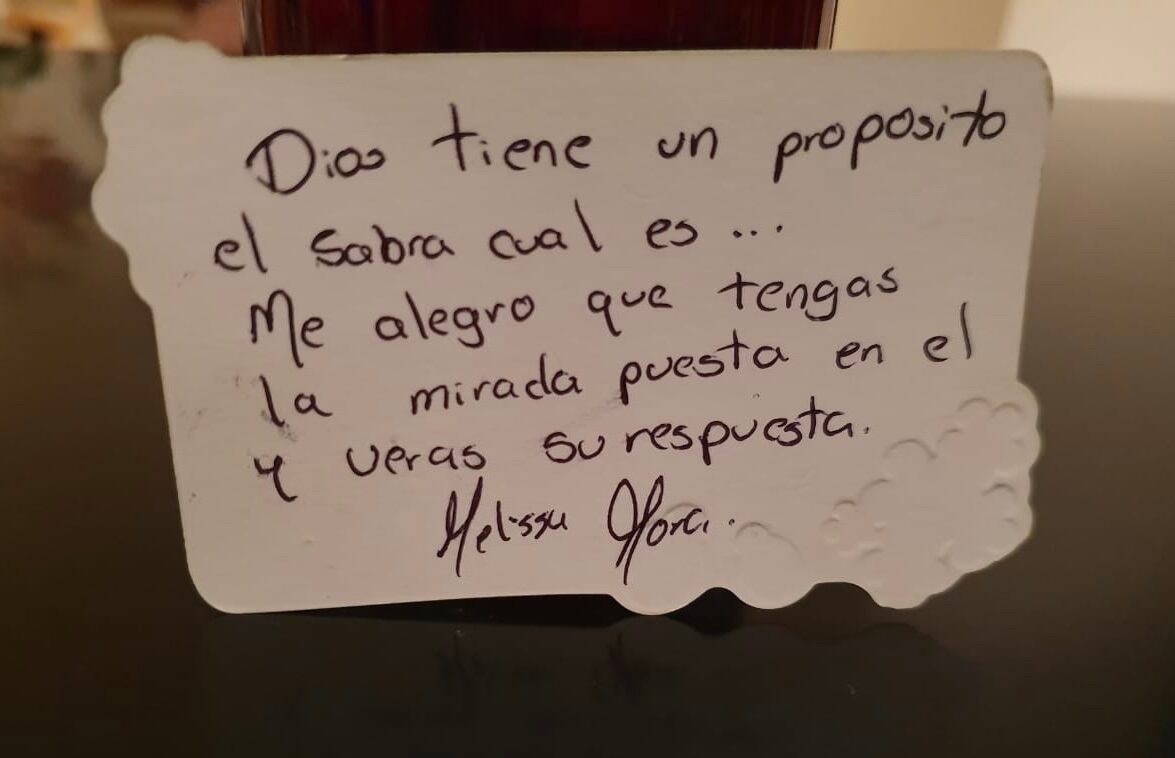 Dios tiene un proposito
el sabra cual es ...
Me alegro que tengas
la mirada puesta en el
y veras su respuesta.
Melissa Mora.